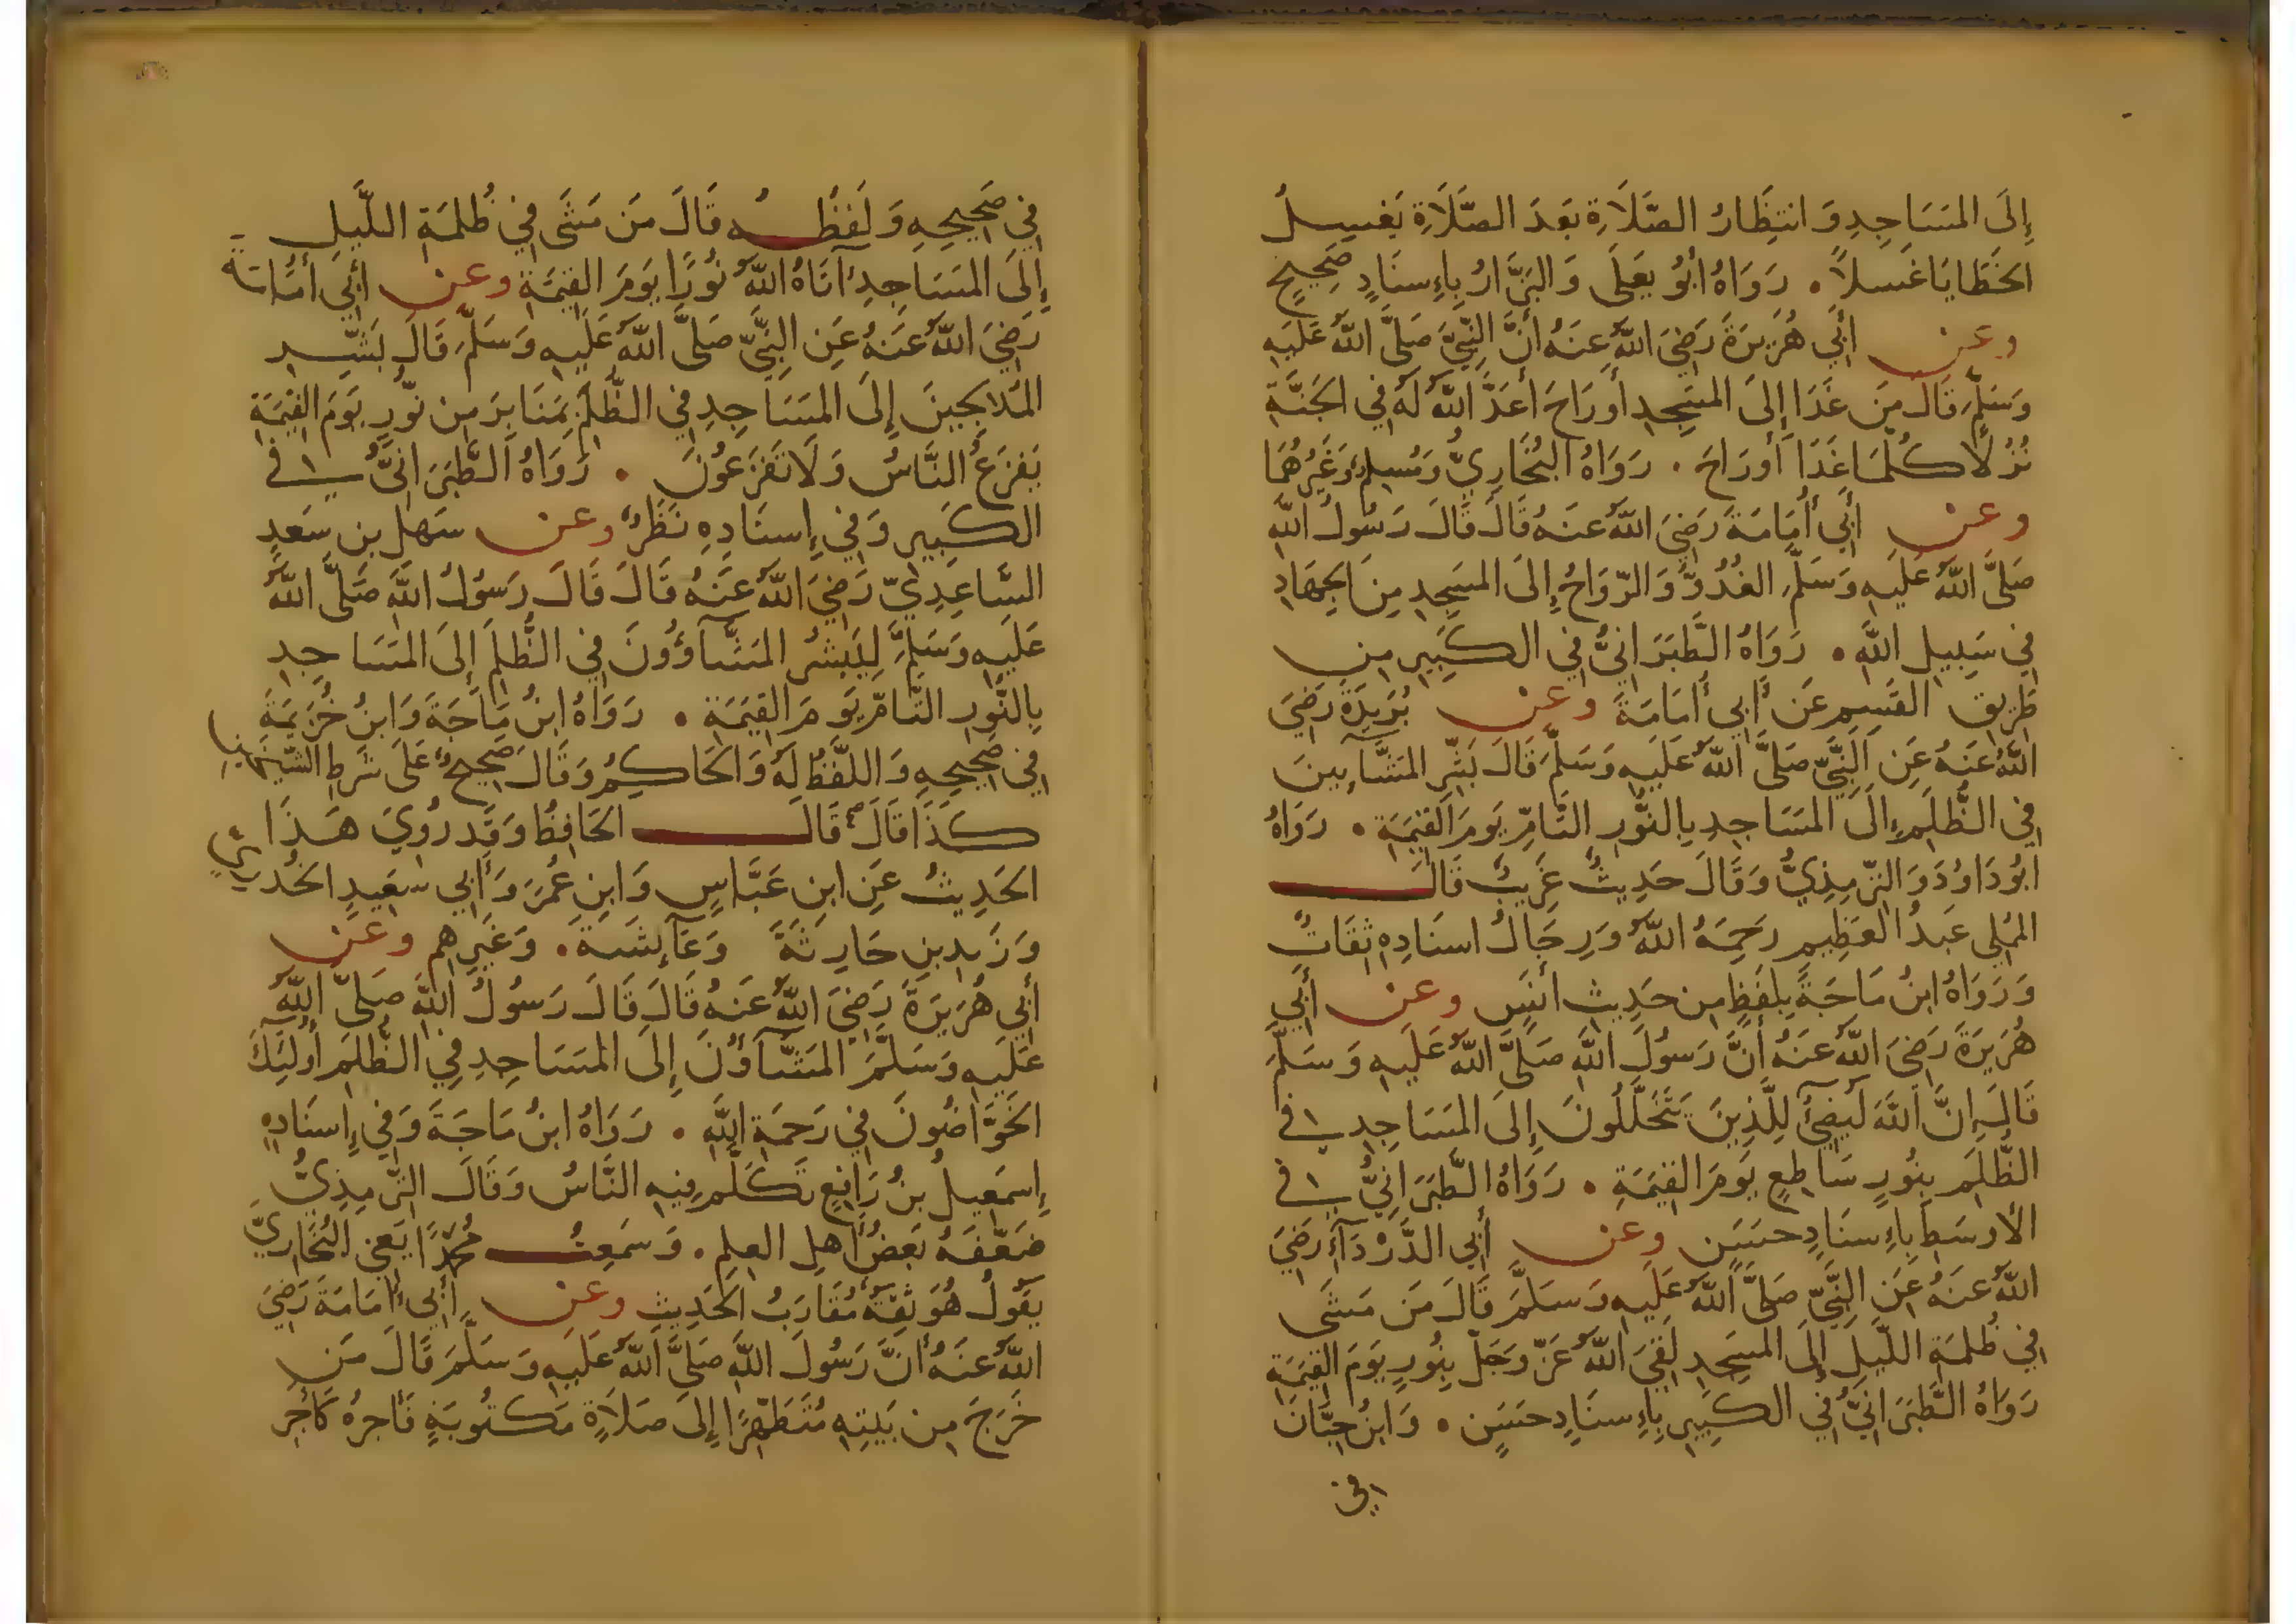 إِلَى المَسَاجِدِ وَانتِظَارُ الصَّلَاةِ بَعدَ الصَّلَاةِ يَغسِلُ
الخَطَايَا غَسلاً . رَوَاهُ أَبُو يَعلَى وَالبَزَّارُ بِإِسنَادٍ صَحِيحٍ
وعن أَبِي هُرَيرَةَ رَضِيَ اللَّهُ عَنهُ أَنَّ النَّبِيَّ صَلَّى اللَّهُ عَلَيهِ
وَسَلَّمَ قَالَ مَن غَدَا إِلَى المَسجِدِ أَو رَاحَ أَعَدَّ اللَّهُ لَهُ فِي الجَنَّةِ
نُزُلًا كُلَّمَا غَدَا أَو رَاحَ . رَوَاهُ البُخَارِيُّ وَمُسلِمٌ وَغَيرُهُمَا
وعن أَبِي أُمَامَةَ رَضِيَ اللَّهُ عَنهُ قَالَ قَالَ رَسُولُ اللَّهِ
صَلَّى اللَّهُ عَلَيهِ وَسَلَّمَ الغُدُوُّ وَالرَّوَاحُ إِلَى المَسجِدِ مِنَ الجِهَادِ
فِي سَبِيلِ اللَّهِ . رَوَاهُ الطَّبَرَانِيُّ فِي الكَبِيرِ مِن
طَرِيقِ القَسِمِ عَن أَبِي أُمَامَةَ وعن بُرَيدَةَ رَضِيَ
اللَّهُ عَنهُ عَنِ النَّبِيِّ صَلَّى اللَّهُ عَلَيهِ وَسَلَّمَ قَالَ بَشِّرِ المَشَّآئِينَ
فِي الظُّلَمِ إِلَى المَسَاجِدِ بِالنُّورِ التَّامِّ يَومَ القِيَمَةِ . رَوَاهُ
ابُو دَاوُدَ وَالتِّرمِذِيُّ وَقَالَ حَدِيثٌ غَرِيبٌ قَالَ
المُملِي عَبدُ العَظِيمِ رَحِمَهُ اللَّهُ وَرِجَالُ اسنَادِهِ ثِقَاتٌ
وَرَوَاهُ ابنُ مَاجَةَ بِلَفظٍ مِن حَدِيثِ أَنَسٍ وعن أَبِي
هُرَيرَةَ رَضِيَ اللَّهُ عَنهُ أَنَّ رَسُولَ اللَّهِ صَلَّى اللَّهُ عَلَيهِ وَسَلَّمَ
قَالَ إِنَّ اللَّهَ لَيُضِئُ لِلَّذِينَ يَتَخَلَّلُونَ إِلَى المَسَاجِدِ فِي
الظُّلَمِ بِنُورٍ سَاطِعٍ يَومَ القِيَمَةِ . رَوَاهُ الطَّبَرَانِيُّ فِي
الأَوسَطِ بِإِسنَادٍ حَسَنٍ وعن أَبِي الدَّرْدَآءِ رَضِيَ
اللَّهُ عَنهُ عَنِ النَّبِيِّ صَلَّى اللَّهُ عَلَيهِ وَسَلَّمَ قَالَ مَن مَشَى
فِي ظُلمَةِ اللَّيلِ إِلَى المَسجِدِ لَقِيَ اللَّهَ عَزَّ وَجَلَّ بِنُورٍ يَومَ القِيَمَةِ
رَوَاهُ الطَّبَرَانِيُّ فِي الكَبِيرِ بِإِسنَادٍ حَسَنٍ . وَابنُ حِبَّانَ
في
فِي صَحِيحِهِ وَلَفظُهُ قَالَ مَن مَشَى فِي ظُلمَةِ اللَّيلِ
إِلَى المَسَاجِدِ آتَاهُ اللَّهُ نُورًا يَومَ القِيَمَةِ وعن أَبِي أُمَامَةَ
رَضِيَ اللَّهُ عَنهُ عَنِ النَّبِيِّ صَلَّى اللَّهُ عَلَيهِ وَسَلَّمَ قَالَ بَشِّرِ
المُدلِجِينَ إِلَى المَسَاجِدِ فِي الظُّلَمِ بِمَنَابِرَ مِن نُورٍ يَومَ القِيَمَةِ
يَفزَعُ النَّاسُ وَلَا تَفزَعُونَ . رَوَاهُ الطَّبَرَانِيُّ فِي
الكَبِيرِ وَفِي إِسنَادِهِ نَظَرٌ وعن سَهلِ بنِ سَعدٍ
السَّاعِدِيِّ رَضِيَ اللَّهُ عَنهُ قَالَ قَالَ رَسُولُ اللَّهِ صَلَّى اللَّهُ
عَلَيهِ وَسَلَّمَ لِيَبشُرِ المَشَّآؤُونَ فِي الظُّلَمِ إِلَى المَسَاجِدِ
بِالنُّورِ التَّامِّ يَومَ القِيَمَةِ . رَوَاهُ ابنُ مَاجَةَ وَابنُ خُزَيمَةَ
فِي صَحِيحِهِ وَاللَّفظُ لَهُ وَالحَاكِمُ وَقَالَ صَحِيحٌ عَلَى شَرطِ الشَّيخَينِ
كَذَا قَالَ قَالَ الحَافِظُ وَقَد رُوِيَ هَذَا
الحَدِيثُ عَنِ ابنِ عَبَّاسٍ وَابنِ عُمَرَ وَأَبِي سَعِيدٍ الخُدرِيِّ
وَزَيدِ بنِ حَارِثَةَ وَعَآئِشَةَ . وَغَيرِهِم وعن
أَبِي هُرَيرَةَ رَضِيَ اللَّهُ عَنهُ قَالَ قَالَ رَسُولُ اللَّهِ صَلَّى اللَّهُ
عَلَيهِ وَسَلَّمَ المَشَّآؤُنَ إِلَى المَسَاجِدِ فِي الظُّلَمِ أُولَئِكَ
الخَوَّاضُونَ فِي رَحمَةِ اللَّهِ . رَوَاهُ ابنُ مَاجَةَ وَفِي إِسنَادِهِ
إِسمَعِيلُ بنُ رَافِعٍ تَكَلَّمَ فِيهِ النَّاسُ وَقَالَ التِّرمِذِيُّ
ضَعَّفَهُ بَعضُ أَهلِ العِلمِ . وَسَمِعتُ مُحَمَّدًا يَعنِي البُخَارِيَّ
يَقُولُ هُوَ ثِقَةٌ مُقَارَبُ الحَدِيثِ وعن أَبِي أُمَامَةَ رَضِيَ
اللَّهُ عَنهُ أَنَّ رَسُولَ اللَّهِ صَلَّى اللَّهُ عَلَيهِ وَسَلَّمَ قَالَ مَن
خَرَجَ مِن بَيتِهِ مُتَطَهِّرًا إِلَى صَلَاةٍ مَكتُوبَةٍ فَأَجرُهُ كَأَجرِ